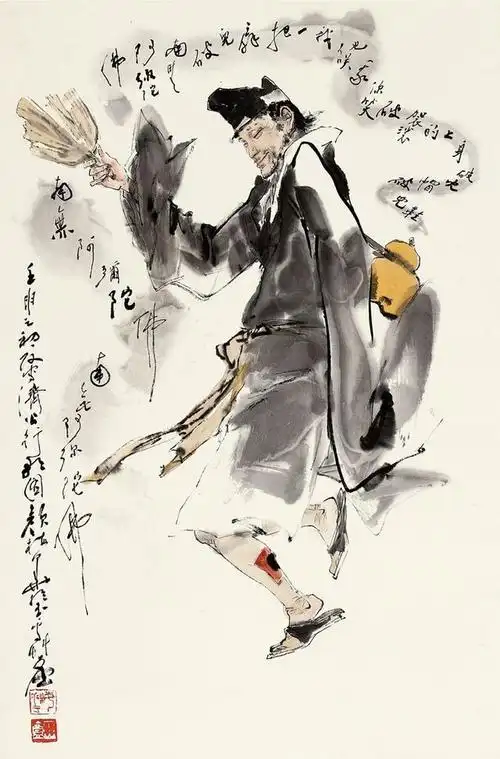 鞋儿破帽儿破身上的袈裟破
笑我他笑我一把扇兒破
南无阿弥陀佛
南無阿彌陀佛
南无阿弥陀佛
壬申之初 濟公行 圖顏梅華